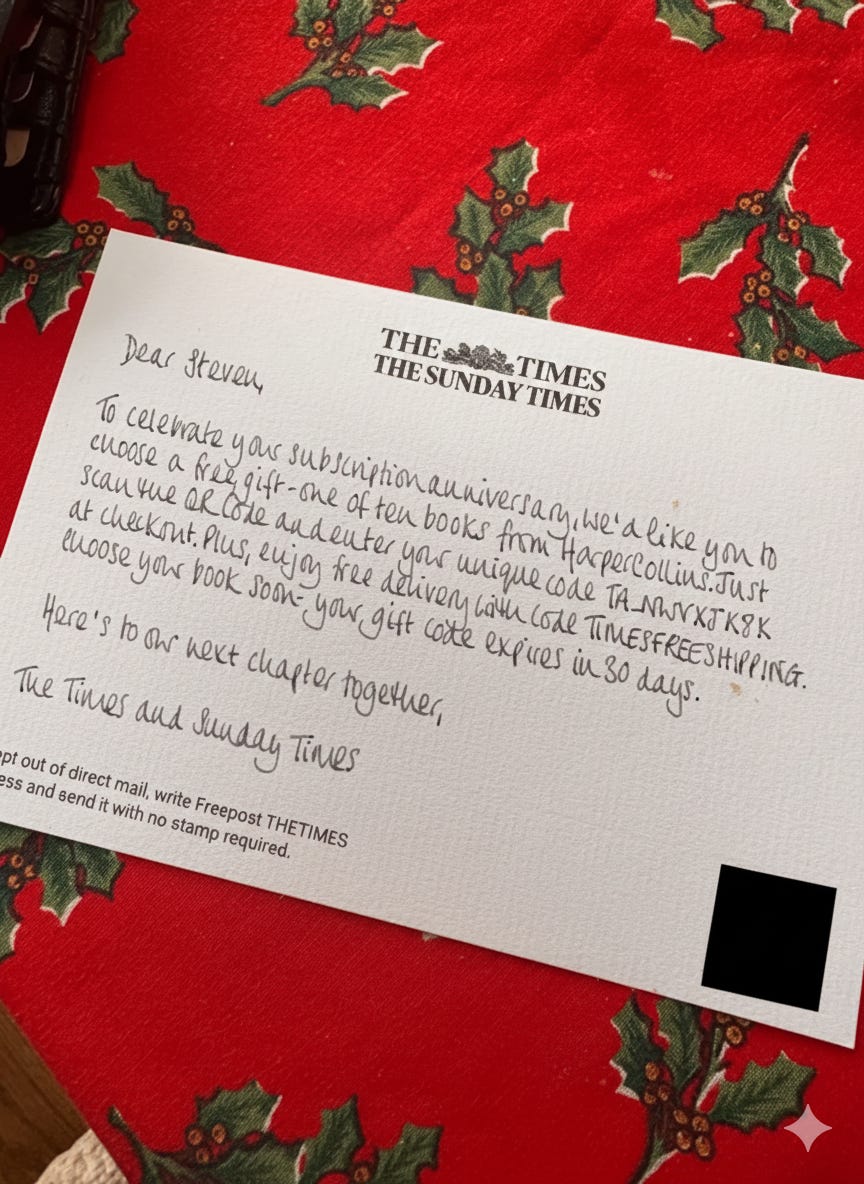 THE TIMES
THE SUNDAY TIMES
Dear Steven,
To celebrate your subscription anniversary, we'd like you to
choose a free gift-one of ten books from HarperCollins. Just
scan the QR Code and enter your unique code
at checkout. Plus, enjoy free delivery with code TIMESFREESHIPPING.
choose your book soon- your gift code expires in 30 days.
Here's to our next chapter together,
The Times and Sunday Times
pt out of direct mail, write Freepost THETIMES
ess and send it with no stamp required.